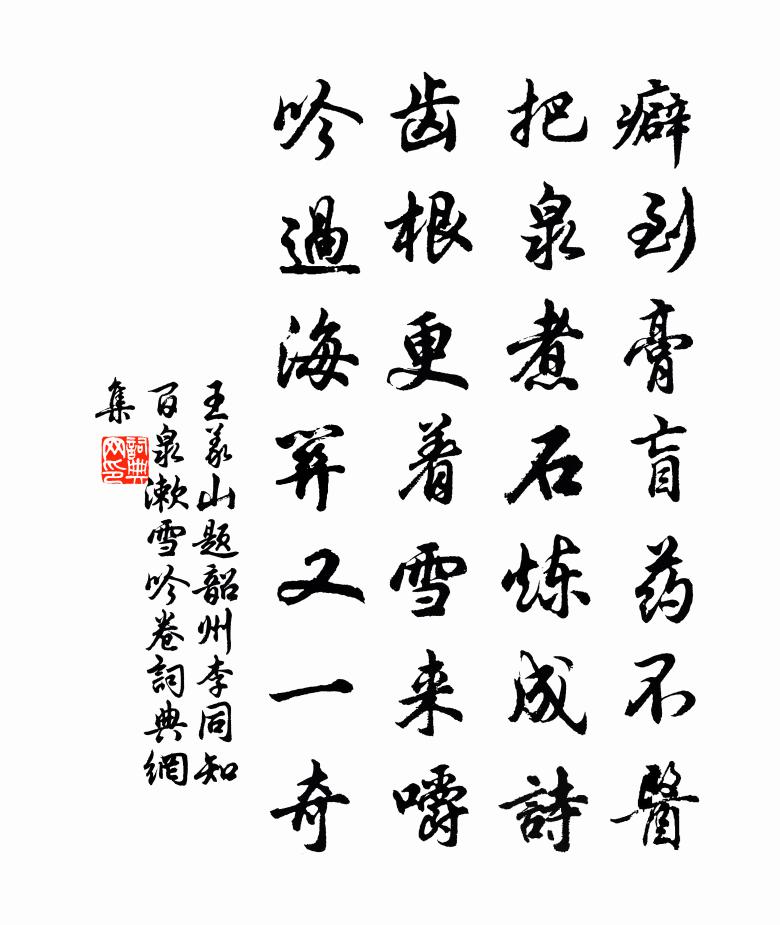 癖到膏盲药不醫
把泉煮石炼成詩
齿根更着雪来嚼
吟過海羿又一奇
王义山题韶州李同知
百泉漱雪吟卷詞典網
集
詞典网印